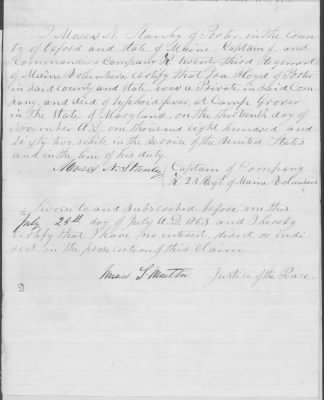 I Moses N. Stanley of Porter, in the Coun
ty of Oxford and State of Maine, Captain of, and
Commander of Company K twenty third Regiment
of Maine Volunteers, certify that Floyd of Porter
in said county and State, was a Private in said Com
pany, and died of typhoid fever, at Camp Grover
in the State of Maryland, on the thirteenth day of
November A.D. one thousand eight hundred and
Sixty two, while in the service of the United States
and in the line of his duty.
Moses N. Stanley Captain of Company
K 23 Regt. of Maine Volunteers
Sworn to and Subscribed before me this
July 28th day of July A.D. 1863 and I hereby
certify that I have no interest, direct or indi
rect in the prosecution of this Claim.
Justice of the Peace.